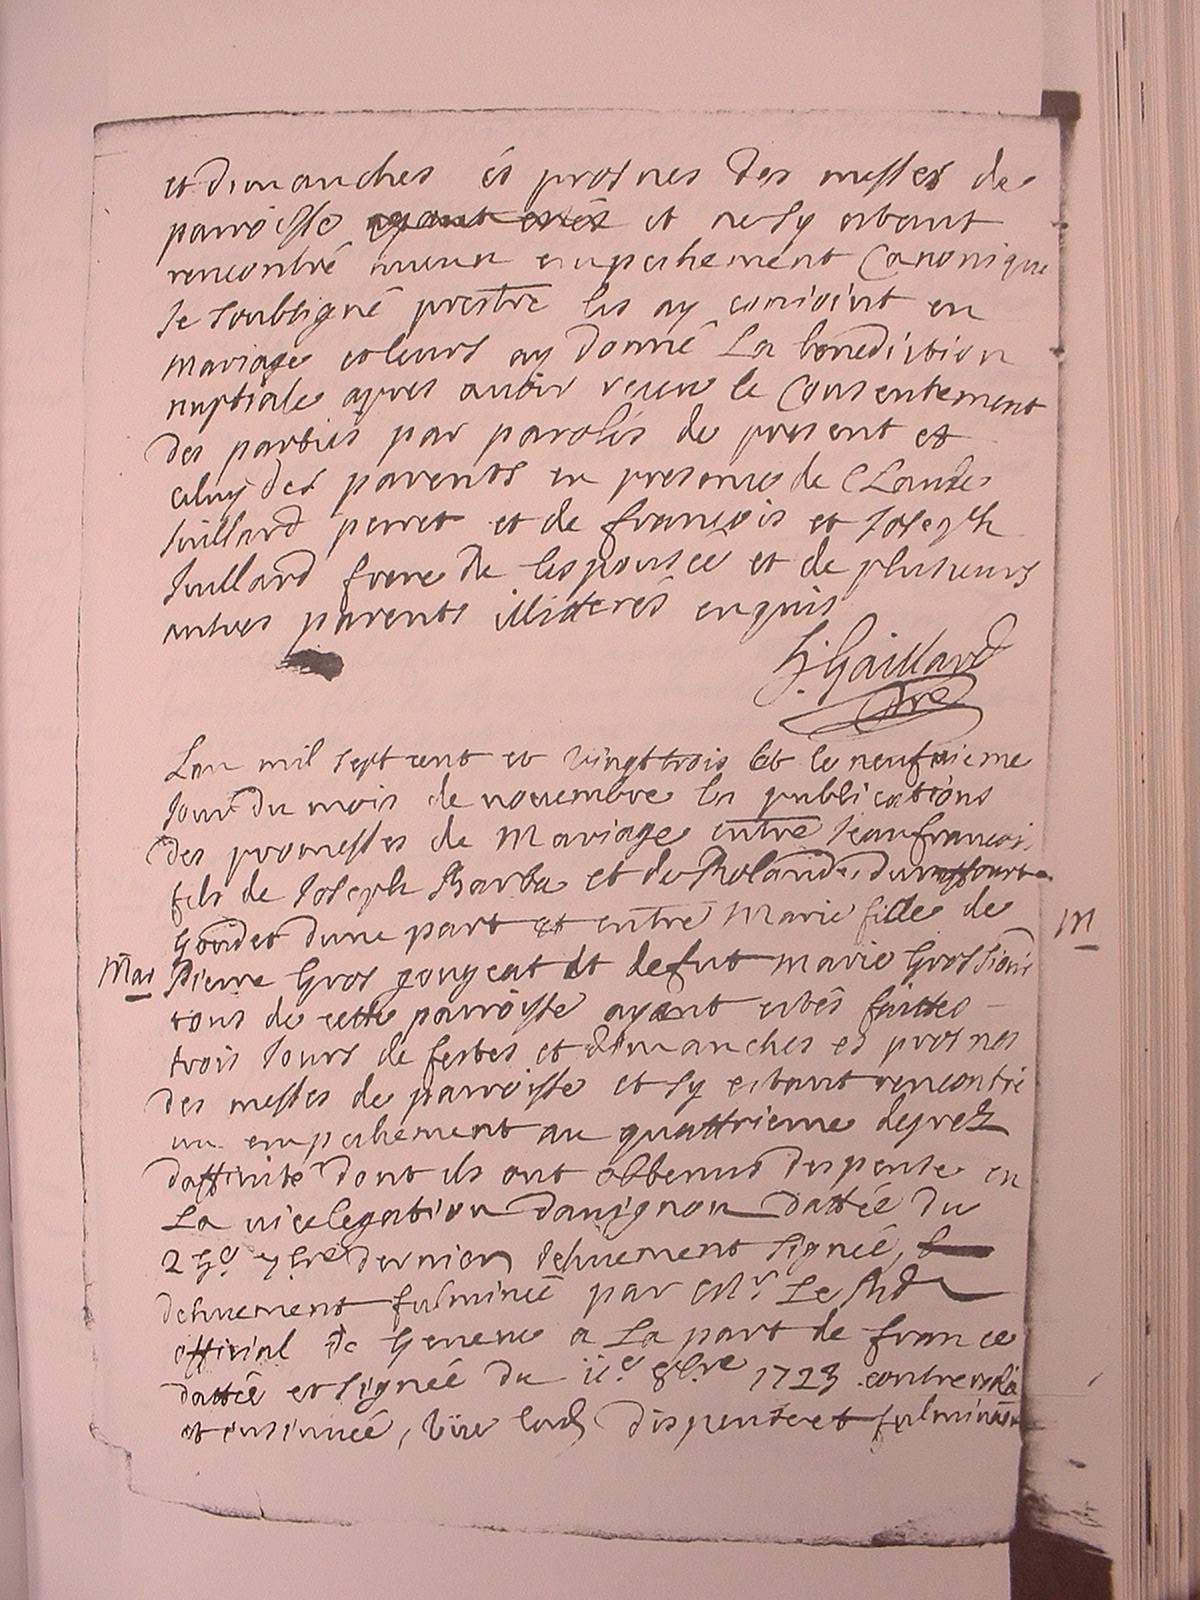 et dimanches és prosnes des messes de
parroisse ayant estés et ne sy estant
rencontré aucun empechement Canonique
Je soubsigné prestre les ay conioint en
mariage et leurs ay donné La benediction
nuptiale apres auoir receu le Consentement
des parties par paroles de present et
celuy des parents en presence de Claude
Juillard perret et de françois et Joseph
Juillard frere de lespousée et de plusieurs
autres parents illitterés enquis
Gaillard
pre
Lan mil sept cent et vingt trois et le neufuieme
Jour du mois de nouembre les publications
des promesses de Mariage entre Jean francois
fils de Joseph Barbe et de Rolande
d'une part et entre Marie fille de
Mar Pierre Gros gougeat et defut marie Grossiord
M
tous de cette parroisse ayant estés faittes
trois Jours de festes et dimanches es prosnes
des messes de parroisse et sy estant rencontré
un empechement au quattrieme degrez
daffinité dont ils ont obbenus despense en
La vicelegation dauignon dattée du
7bre dernier dehuement signée,
dehuement fulminée par Mr. Le
official de Geneue a La part de france
dattée et signée du 11e 8bre 1723 controlée
et insinuée, lad dispense et fulmination